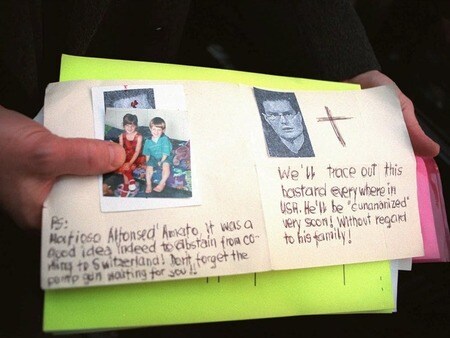 PS:
Mafioso Alfonsed'Amato, it was a
good idea indeed to abstain from co-
ming to Switzerland! Don't forget the
pump gun waiting for you!!
We'll trace out this
bastard everywhere in
USA. He'll be "cunanarized"
very soon! Without regard
to his family!